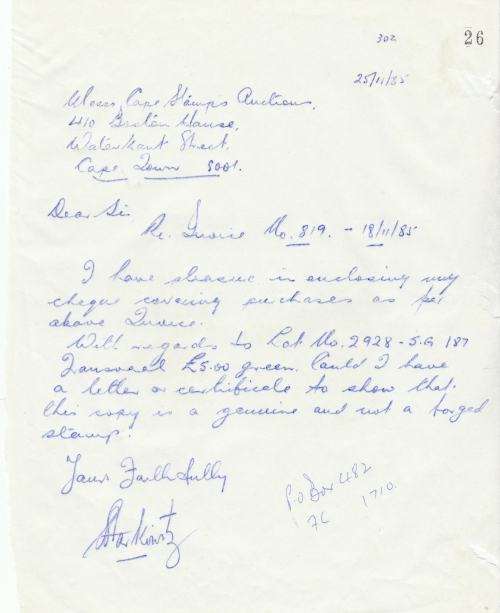 302
26
25/11/85
Messrs Cape Stamps Auctions,
410 Boston House,
Waterkant Street.
Cape Town 8001.
Dear Sir
Re. Invoice No. 819. - 18/11/85
I have pleasure in enclosing my
cheque covering purchases as per
above Invoice.
With regards to Lot No. 2928 - S.G 187
Transvaal £5.00 green. Could I have
a letter or certificate to show that
this copy is a genuine and not a forged
stamp.
Yours Faithfully
P.O Box 482
1710.